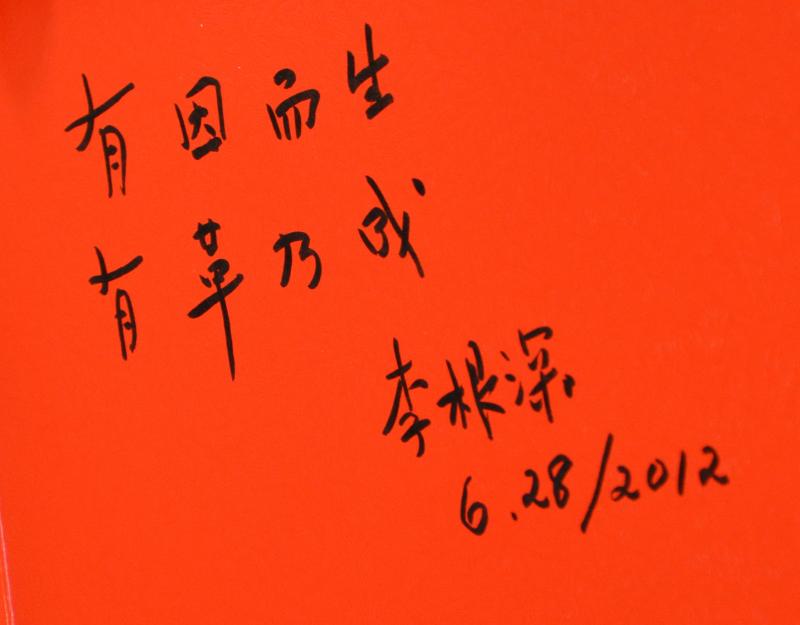 有因而生
有革乃成
李根深
6.28/2012